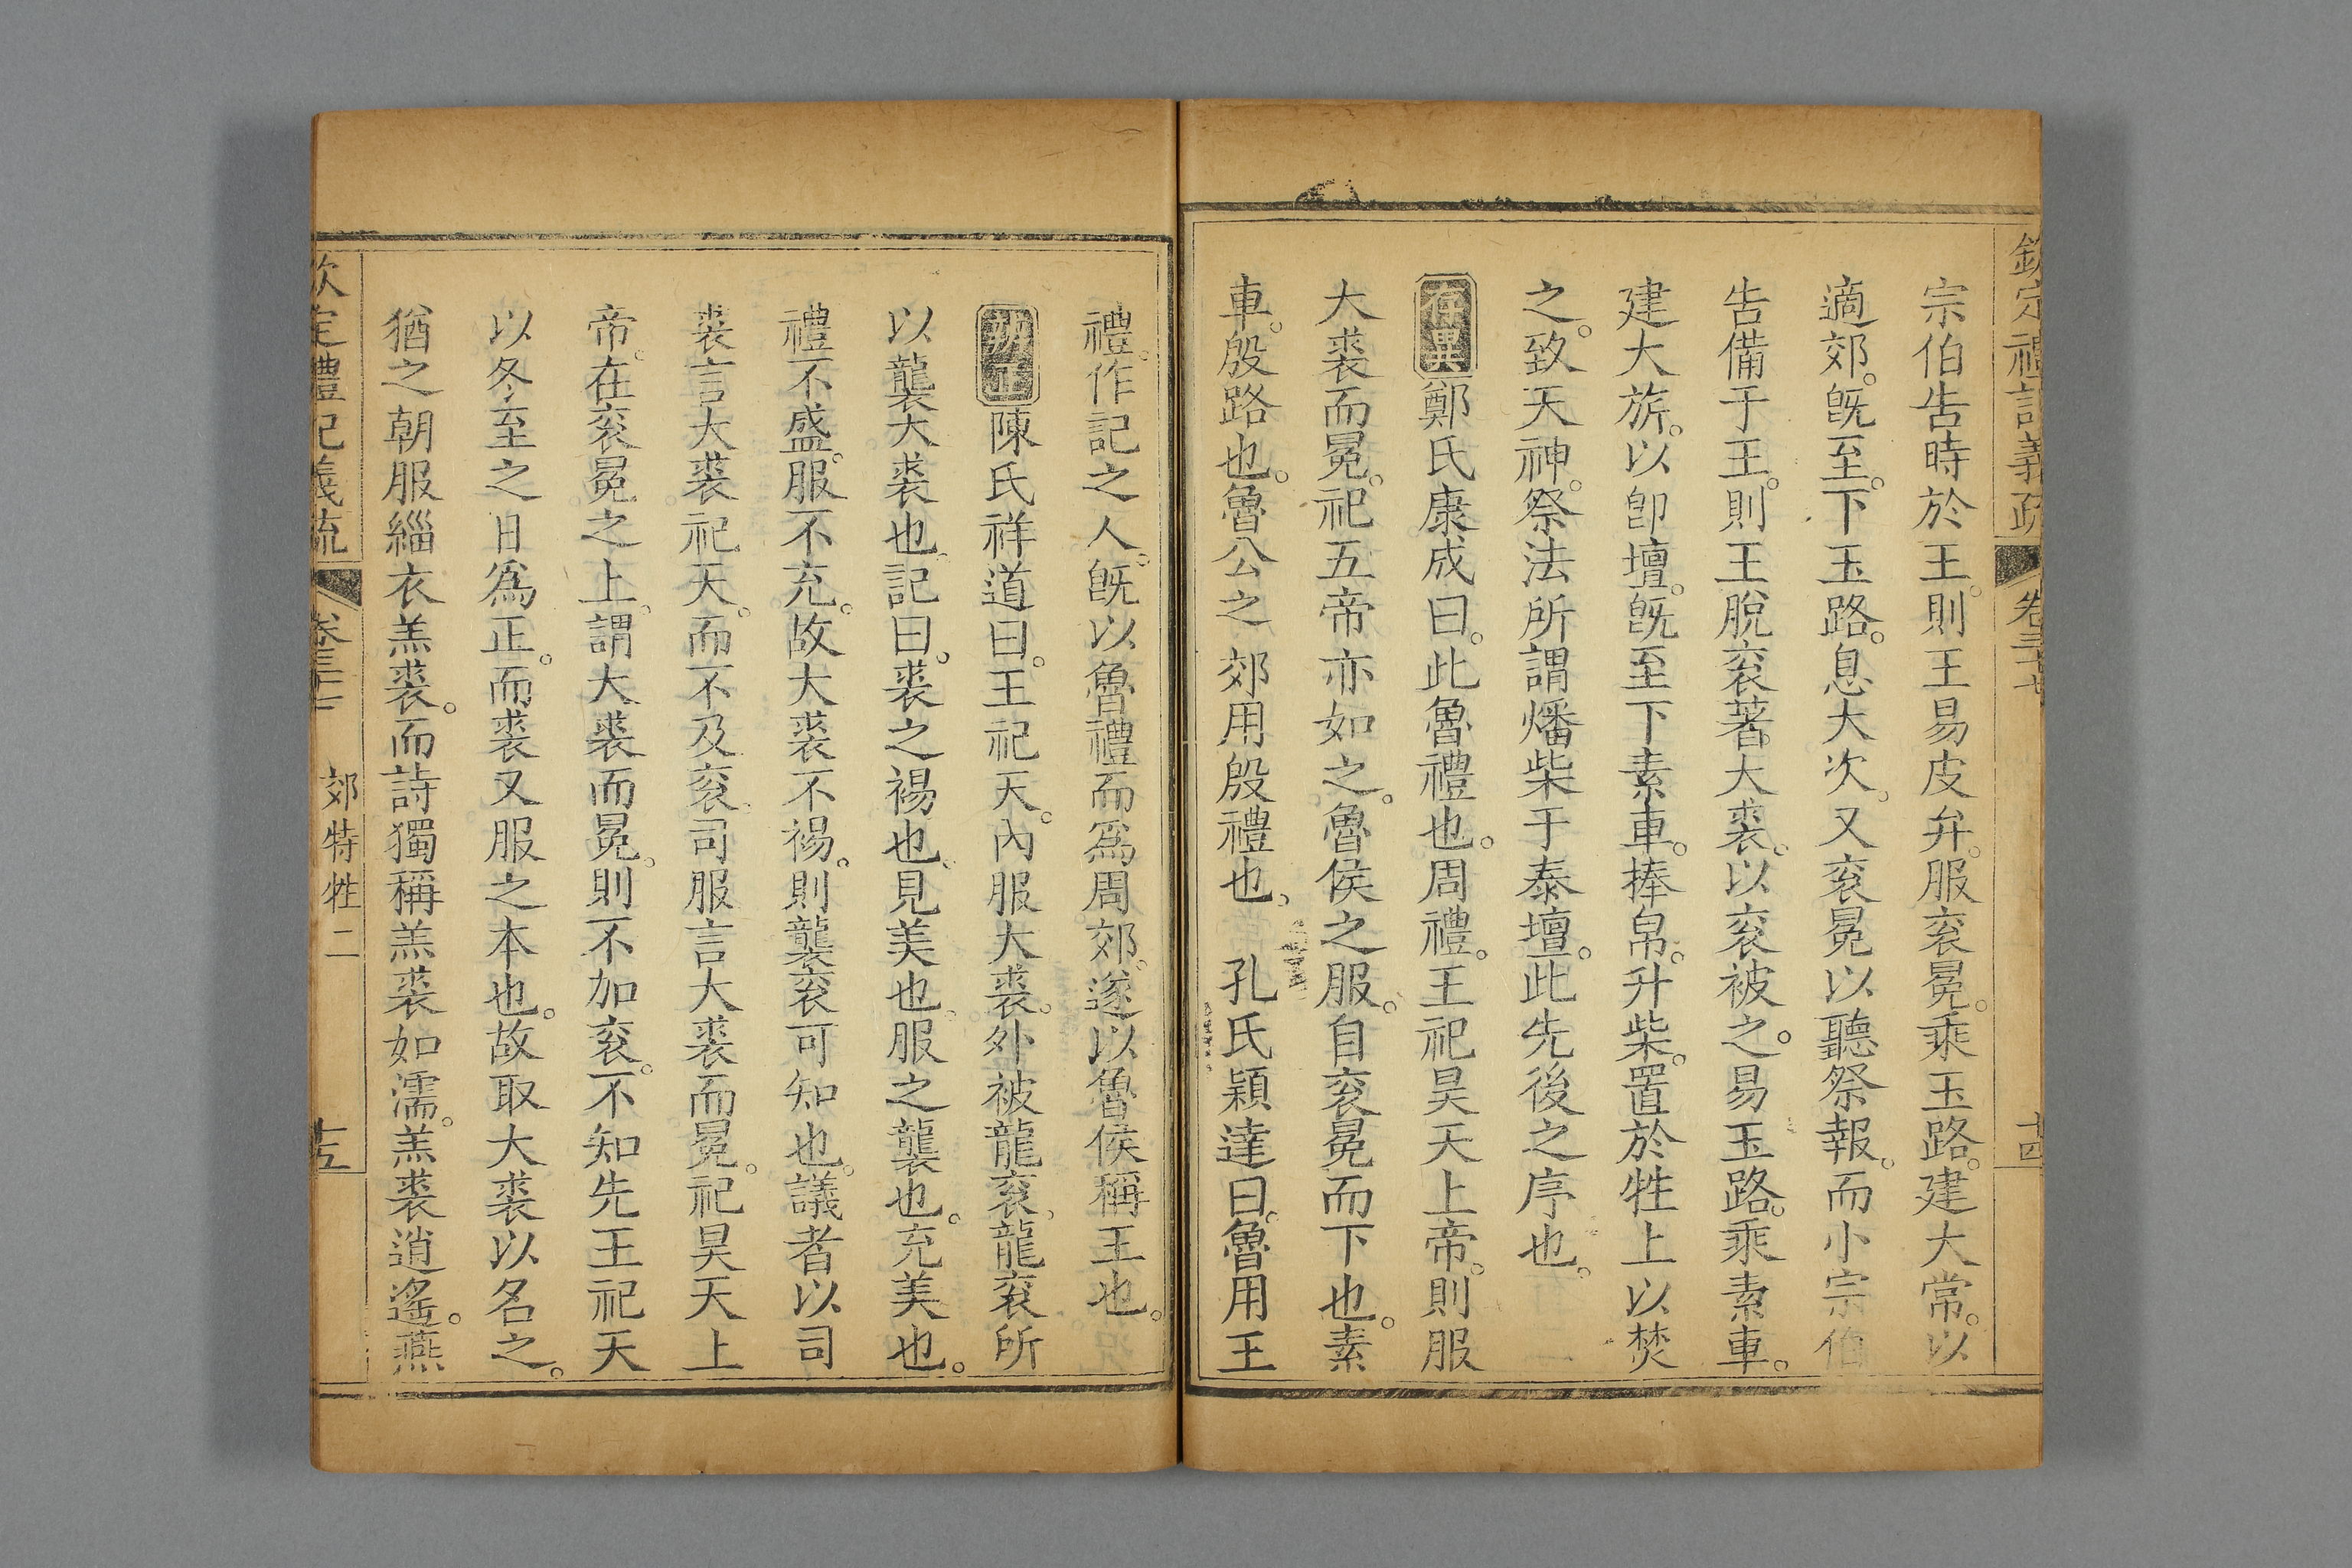 欽定禮記義疏 卷三十七 十四
宗伯告時於王。則王易皮弁。服衮冕。乘玉路。建大常。以
適郊。旣至。下玉路。息大次。又衮冕以聽祭報。而小宗伯
告備于王。則王脫衮著大裘。以衮被之。易玉路。乘素車。
建大旂。以卽壇。旣至下素車。捧帛。升柴。置於牲上以焚
之。致天神。祭法所謂燔柴于泰壇。此先後之序也。
存異鄭氏康成曰。此魯禮也。周禮。王祀昊天上帝。則服
大裘而冕。祀五帝亦如之。魯侯之服。自衮冕而下也。素
車。殷路也。魯公之郊用殷禮也。 孔氏穎達曰。魯用王
禮。作記之人。旣以魯禮而爲周郊。遂以魯侯稱王也。
辨正陳氏祥道曰。王祀天。內服大裘。外被龍衮。龍衮所
以襲大裘也。記曰。裘之裼也。見美也。服之襲也。充美也。
禮不盛。服不充。故大裘不裼。則襲衮可知也。議者以司
裘言大裘祀天。而不及衮。司服言大裘而冕。祀昊天上
帝。在衮冕之上。謂大裘而冕。則不加衮。不知先王祀天
以冬至之日爲正。而裘又服之本也。故取大裘以名之。
猶之朝服緇衣羔裘。而詩獨稱羔裘如濡。羔裘逍遙。燕
欽定禮記義疏 卷三十七 郊特牲二 十五